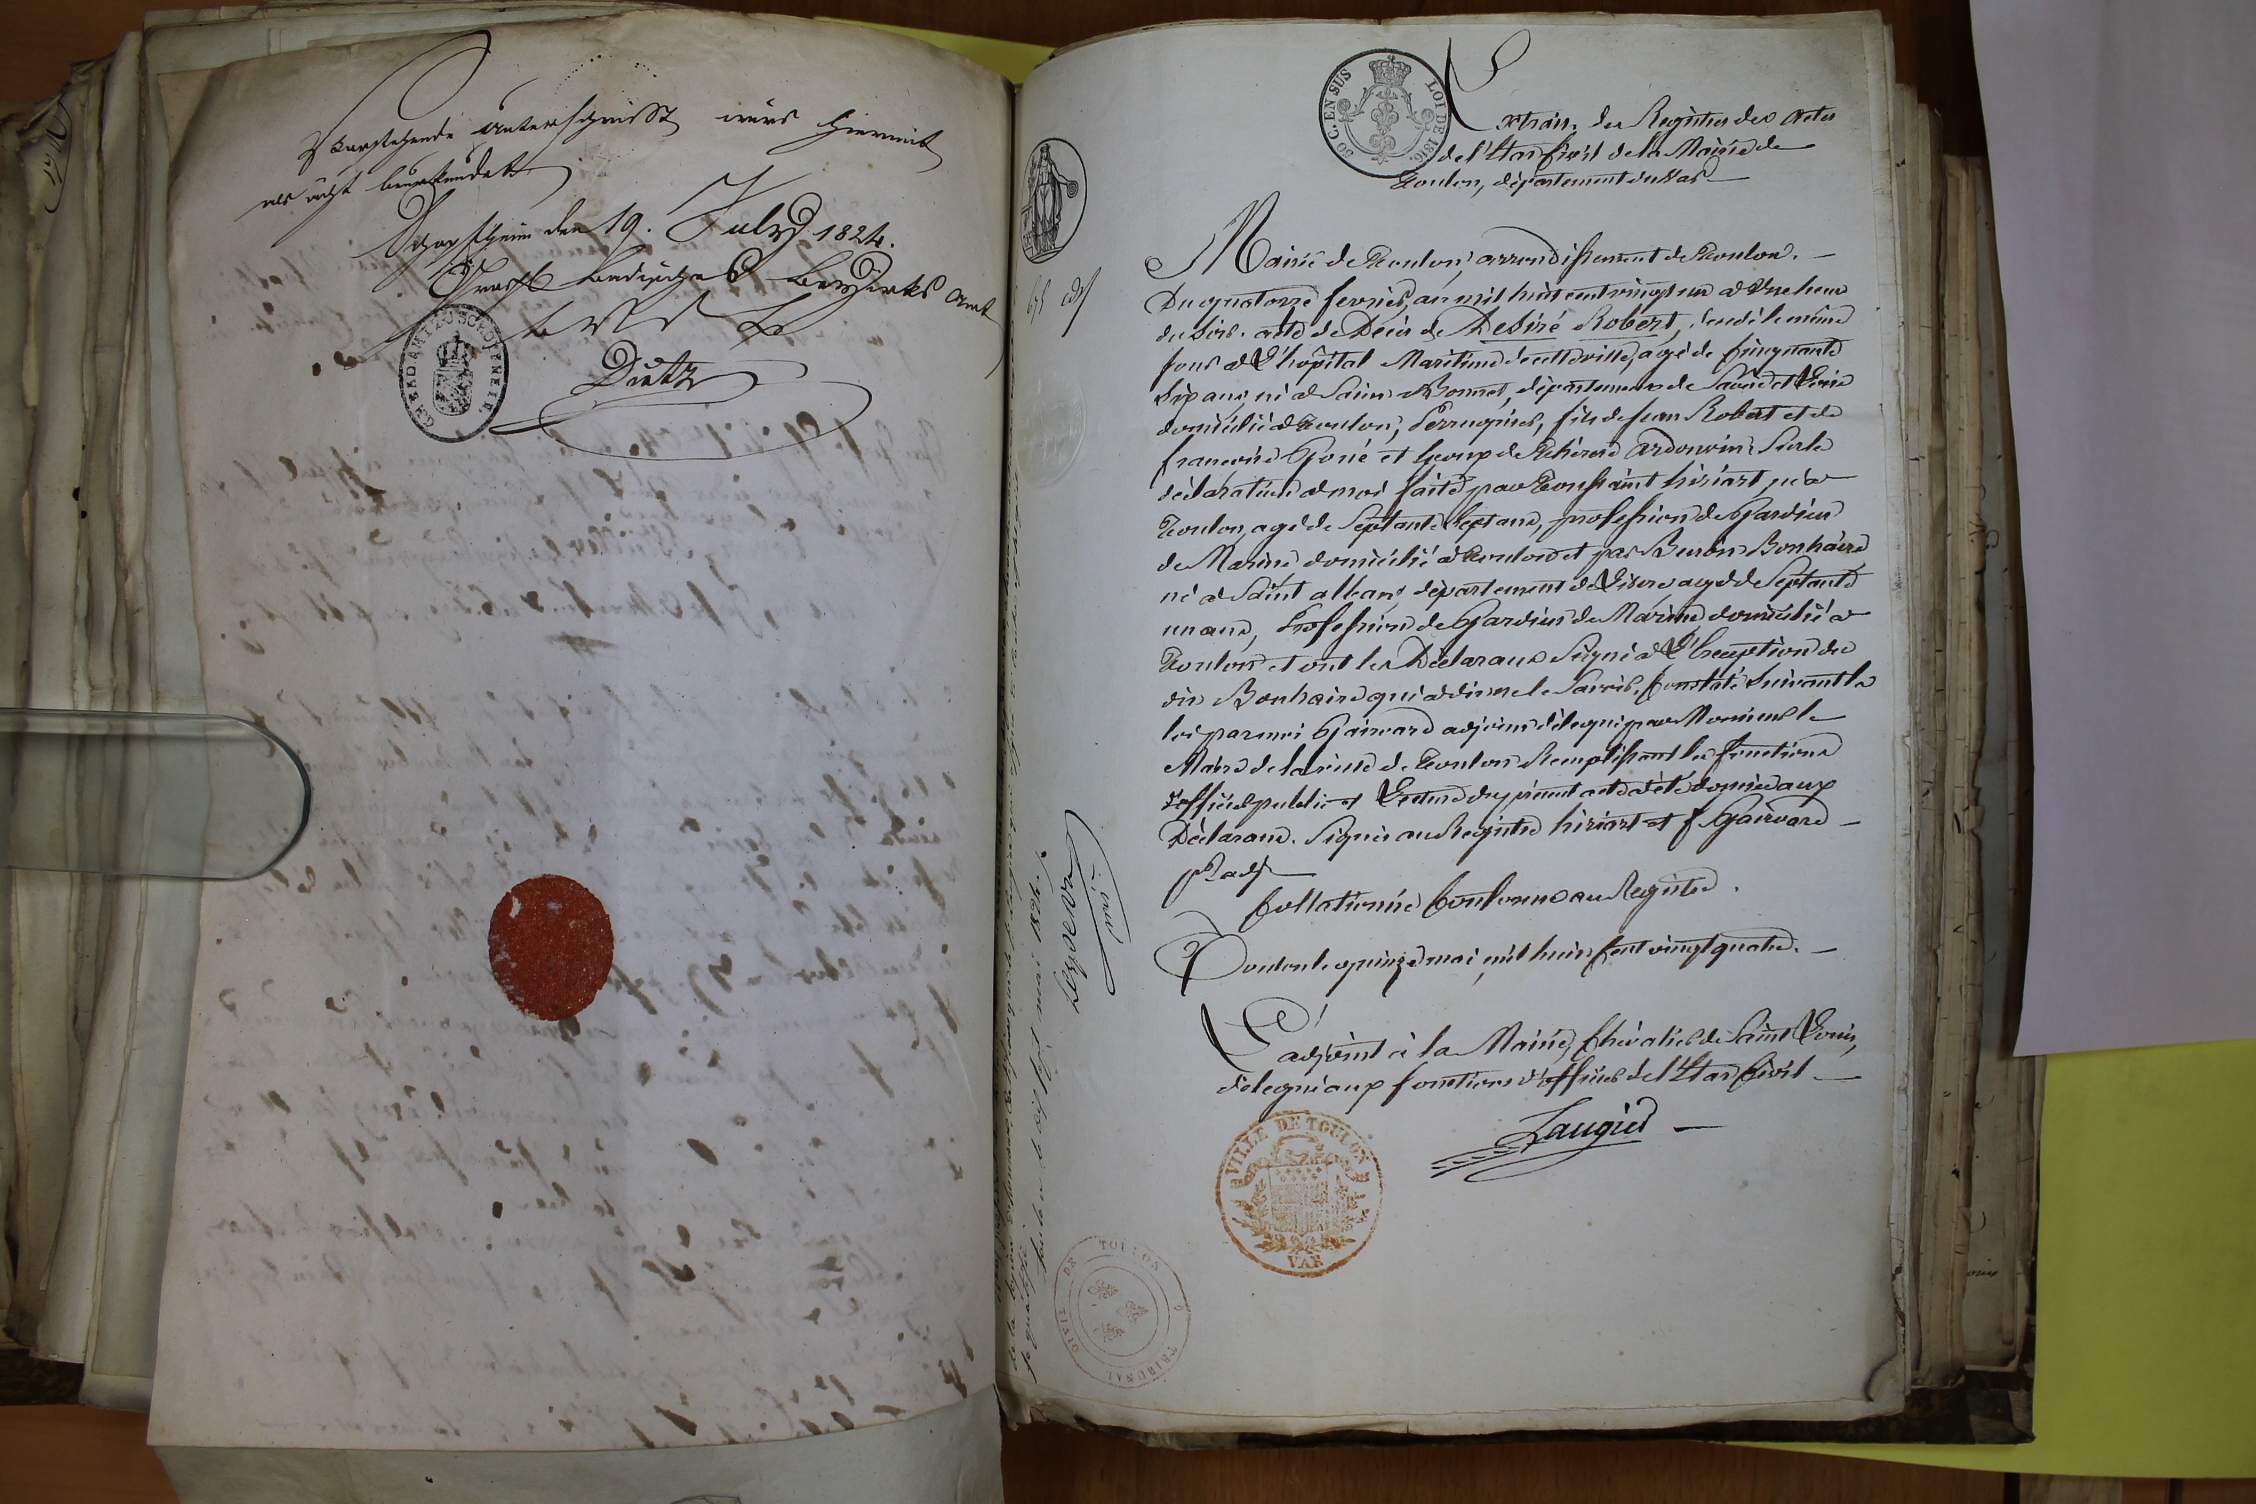 Vorstehende Unterschrift wird hiermit
als ächt beurkundet
Schopfheim den 19. July 1824.
Grosh Badisches Bezirks Amt
Duttz
GR. BAD. AMT ZU SCHOPFHEIM
50 C. EN SUS
LOI DE 1816.
Extrait des Registres des Actes
de l'Etat Civil de la Mairie de
Toulon, département du Var
Mairie de Toulon, arrondissement de Toulon.
Du quatorze fevrier, an mil huit cent vingt un à une heure
du soir. acte de Décès de Désiré Robert, decédé le même
jour à l'hôpital Maritime de cette ville, agé de Cinquante
Six ans, né à Saint Bonnet, département de Saône et Loire
domicilié à Toulon, Perruquier, fils de Jean Robert et de
françoise Goné et Epoux de Thérese Ardouvin. Sur la
déclaration à moi faite par Constaint hiriart, né à
Toulon, agé de Septante Sept ans, profession de Gardien
de Marine domicilié à Toulon et par Bonhaire
né à Saint alban, département de l'Isere agé de Septante
un ans, Profession de Gardien de Marine, domicilié à
Toulon et ont les Déclarans Signé à l'Exception du
dit Bonhaire qui a dit ne le Savoir. Constaté Suivant la
loi par moi Gairoard adjoint délegué par Monsieur le
Maire de la ville de Toulon Remplissant les fonctions
d'officier public et Lecture du présent acte a été donnée aux
Déclarans. Signés au Registre hiriart et f. Gairoard
adjt
Collationné Conforme au Registre.
Toulon le quinze mai, mil huit Cent vingt quatre.
L'adjoint à la Mairie, Chevalier de Saint Louis,
délegué aux fonctions d'officier de l'Etat Civil
Laugier
VILLE DE TOULON
VAR
TRIBUNAL CIVIL DE TOULON
mai 1824.